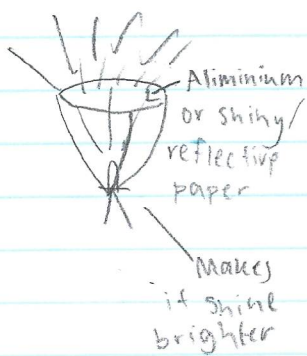 Aliminium
or shiny/
reflective
paper
Makes
it shine
brighter